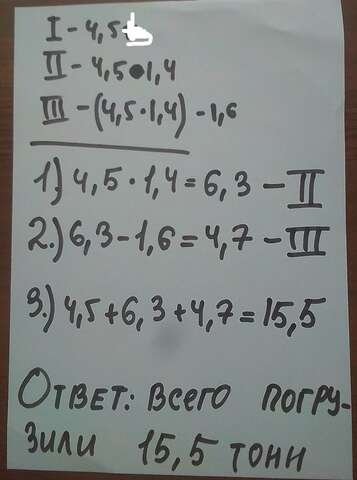 I - 4,5т
II - 4,5•1,4
III - (4,5·1,4) - 1,6
1.) 4,5·1,4 = 6,3 - II
2.) 6,3-1,6 = 4,7 - III
3.) 4,5+6,3+4,7 = 15,5
Ответ: всего погру-
зили 15,5 тонн